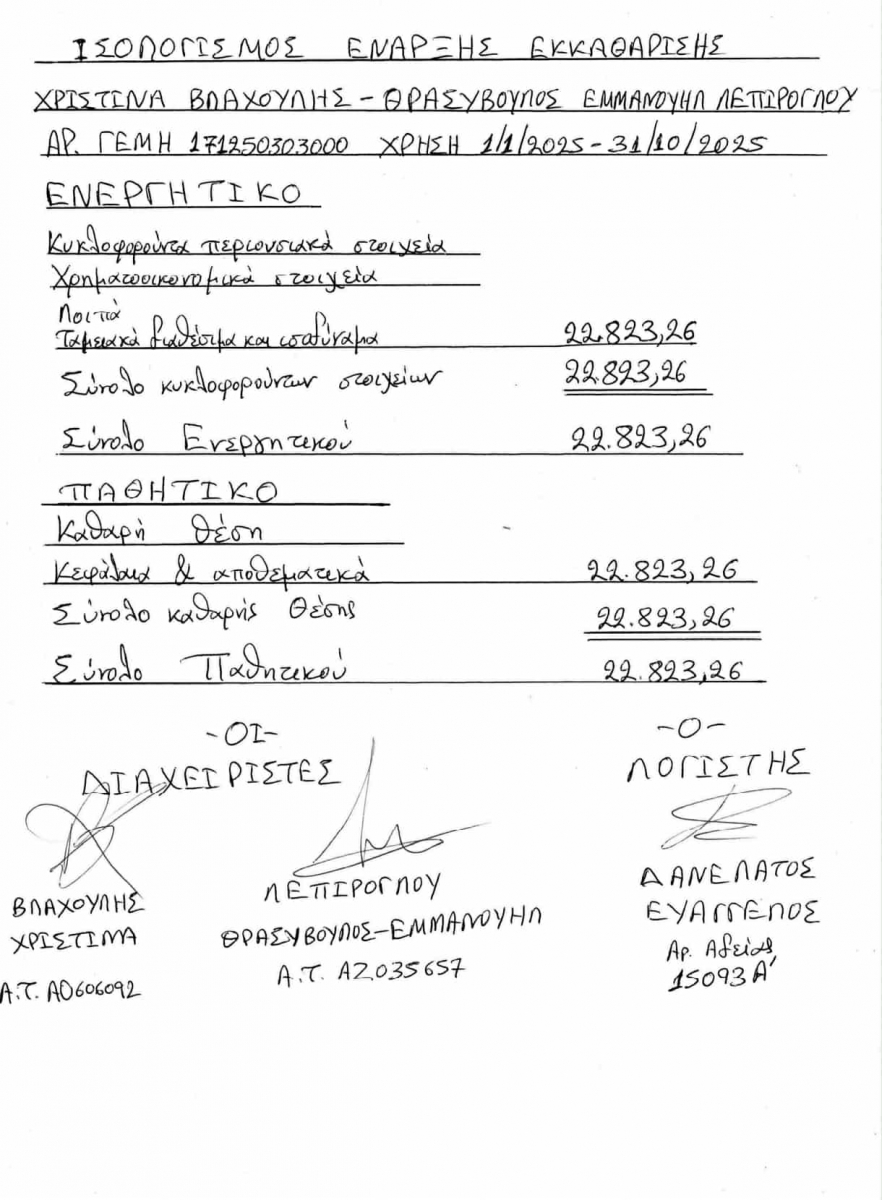 ΙΣΟΛΟΓΙΣΜΟΣ ΕΝΑΡΞΗΣ ΕΚΚΑΘΑΡΙΣΗΣ
ΧΡΙΣΤΙΝΑ ΒΛΑΧΟΥΛΗΣ - ΘΡΑΣΥΒΟΥΛΟΣ ΕΜΜΑΝΟΥΗΛ ΛΕΠΙΡΟΓΛΟΥ
ΑΡ. ΓΕΜΗ 171250303000 ΧΡΗΣΗ 1/1/2025 - 31/10/2025
ΕΝΕΡΓΗΤΙΚΟ
Κυκλοφορούντα περιουσιακά στοιχεία
Χρηματοοικονομικά στοιχεία
Λοιπά
Ταμειακά διαθέσιμα και ισοδύναμα 22.823,26
Σύνολο κυκλοφορούντων στοιχείων 22.823,26
Σύνολο Ενεργητικού 22.823,26
ΠΑΘΗΤΙΚΟ
Καθαρή θέση
Κεφάλαια & αποθεματικά 22.823,26
Σύνολο καθαρής θέσης 22.823,26
Σύνολο Παθητικού 22.823,26
-ΟΙ- -Ο-
ΔΙΑΧΕΙΡΙΣΤΕΣ ΛΟΓΙΣΤΗΣ
ΒΛΑΧΟΥΛΗΣ ΛΕΠΙΡΟΓΛΟΥ ΔΑΝΕΛΑΤΟΣ
ΧΡΙΣΤΙΝΑ ΘΡΑΣΥΒΟΥΛΟΣ-ΕΜΜΑΝΟΥΗΛ ΕΥΑΓΓΕΛΟΣ
Α.Τ. ΑΟ606092 Α.Τ. ΑΖ035657 Αρ. Αδείας
15093 Α'